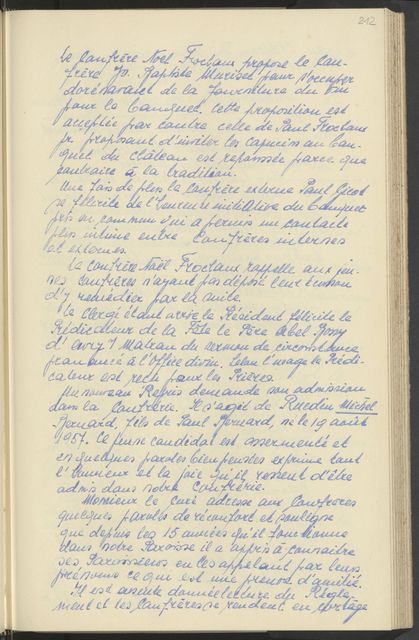 212
Le Confrère Noël Frochaux propose le Con-
frère Jn. Baptiste Muriset pour s'occuper
dorénavant de la fourniture du vin
pour le banquet. Cette proposition est
acceptée par contre celle de Paul Frochaux
fr. proposant d'inviter les capucins au ban-
quet du château est repoussée parce que
contraire à la tradition.
Une fois de plus le Confrère externe Paul Girod
se félicite de l'heureuse initiative du banquet
pris en commun qui a permis un contacte
plus intime entre Confrères internes
et externes.
Le confrère Noël Frochaux rappelle aux jeu-
nes Confrères n'ayant pas déposé leur écusson
d'y remédier par la suite.
Le clergé étant arrivé le Président félicite le
Prédicateur de la Fête le Père Abel
d' pour le sermon de circonstance
prononcé à l'Office divin. Selon l'usage le Prédi-
cateur est reçu pour les Prières.
Un nouveau demande son admission
dans la Confrérie. Il s'agit de Ruedin Michel
Bernard, fils de Paul Bernard, né le 19 août
1957. Ce jeune candidat est assermenté et
en quelques paroles bien pensées exprime tout
l'honneur et la joie qu'il ressent d'être
admis dans notre Confrérie.
Monsieur le Curé adresse aux Confrères
quelques paroles de réconfort et souligne
que depuis les 15 années qu'il fonctionne
dans notre Paroisse il a appris à connaître
ses Paroissiens en les appelant par leurs
prénoms ce qui est une preuve d'amitié.
Il est ensuite donné lecture du Règle-
ment et les Confrères se rendent en cortège